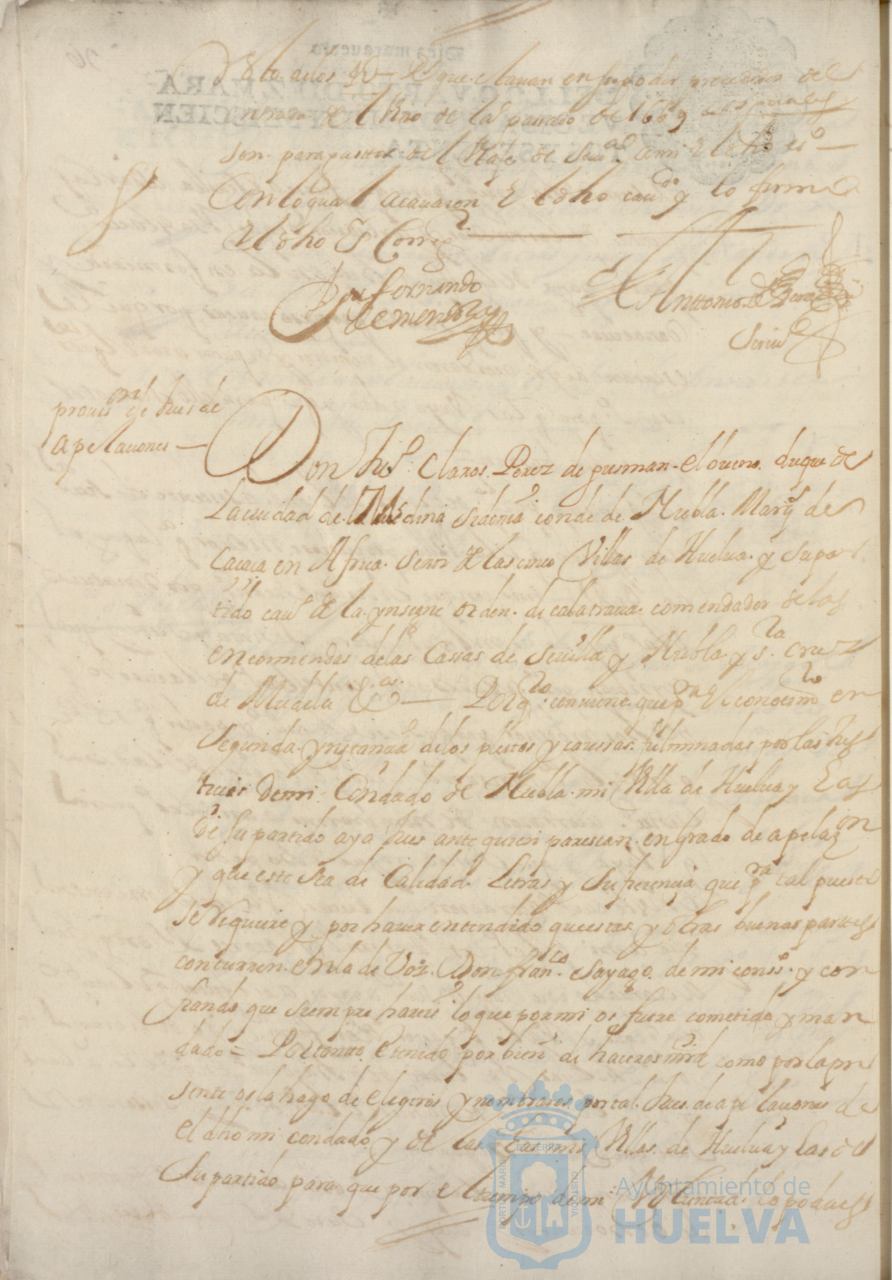 que estauan en su poder procedidos del
de 1669
Con lo qual acauaron el dho caudo y lo firmo
el dho Sr Corregr
Dn fernando
de mendoza
Anttonio de
Scriuo
prouisn de Jues de
apelaciones
Don Juo. Claros Perez de gusman. el bueno. duque de
La ciudad de Medina sidonia conde de Niebla. Marqs de
Caçaça en Africa. señor de las cinco Villas de Huelua. y su par
tido cauo de la ynsigne orden. de calatraua. comendador de las
encomiendas de las Cassas de Seuilla y Niebla y sta cruz
de Mudela &as. — Por qto. conuiene que pra el conocimto en
Segunda ynstancia de los pleitos y caussas. fulminadas por las Jus
ticias de mi Condado de Niebla. mi Villa de Huelua y las
de su partido aya Jues ante quien parescan. en grado de apelazon
y que este sea de Calidad. Letras y suficiencia que pra tal puesto
se requiere y por hauer entendido que estas y otras buenas partes
concurren. en la de Vos. Don franco. Sayago. de mi conso. y con
fiando que siempre hareis lo que por mi os fuere cometido y man
dado = Por tanto. e tenido por bien de haceros mrd como por la pre
sente os la hago de elegiros y nombraros por tal. Jues. de apelaciones de
el dho mi condado y de las mis Villas. de Huelua y las de
Su partido para que por el tiempo de mi Voluntad. lo podais
Ayuntamiento de
HUELVA